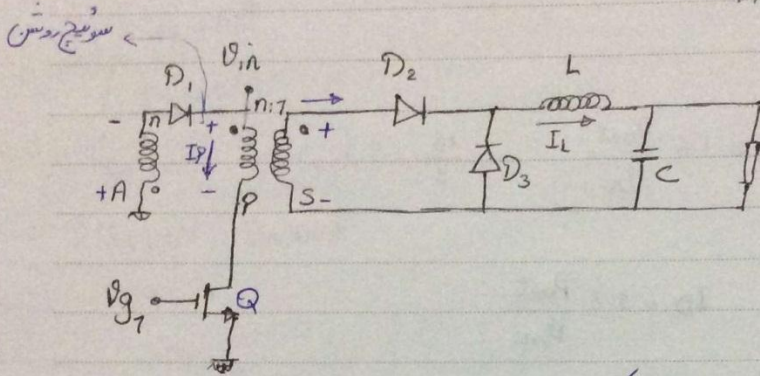 سوئیچ روشن
Vin
D1
D2
L
n
n:1
- + +
IP
IL
+A - P S-
D3
C
Vg1
Q